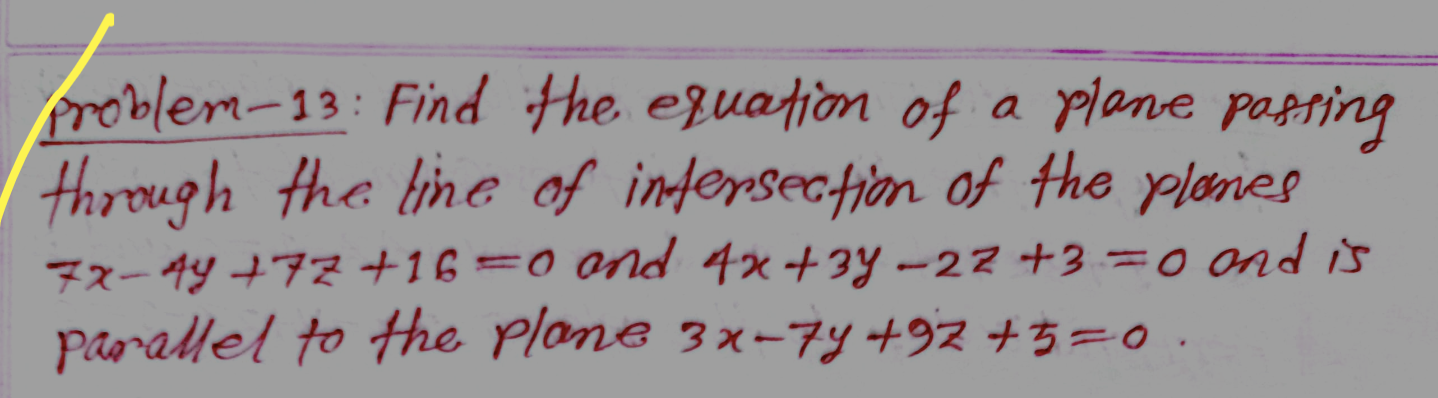 Problem-13: Find the equation of a plane passing
through the line of intersection of the planes
7x-4y+7z+16=0 and 4x+3y-2z+3=0 and is
parallel to the plane 3x-7y+9z+5=0.